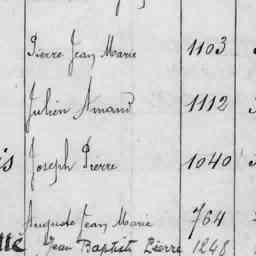 Pierre Jean Marie 1103
Julien Amand 1112
is Joseph Pierre 1040
Auguste Jean Marie 764
Jean Baptiste Pierre 1248